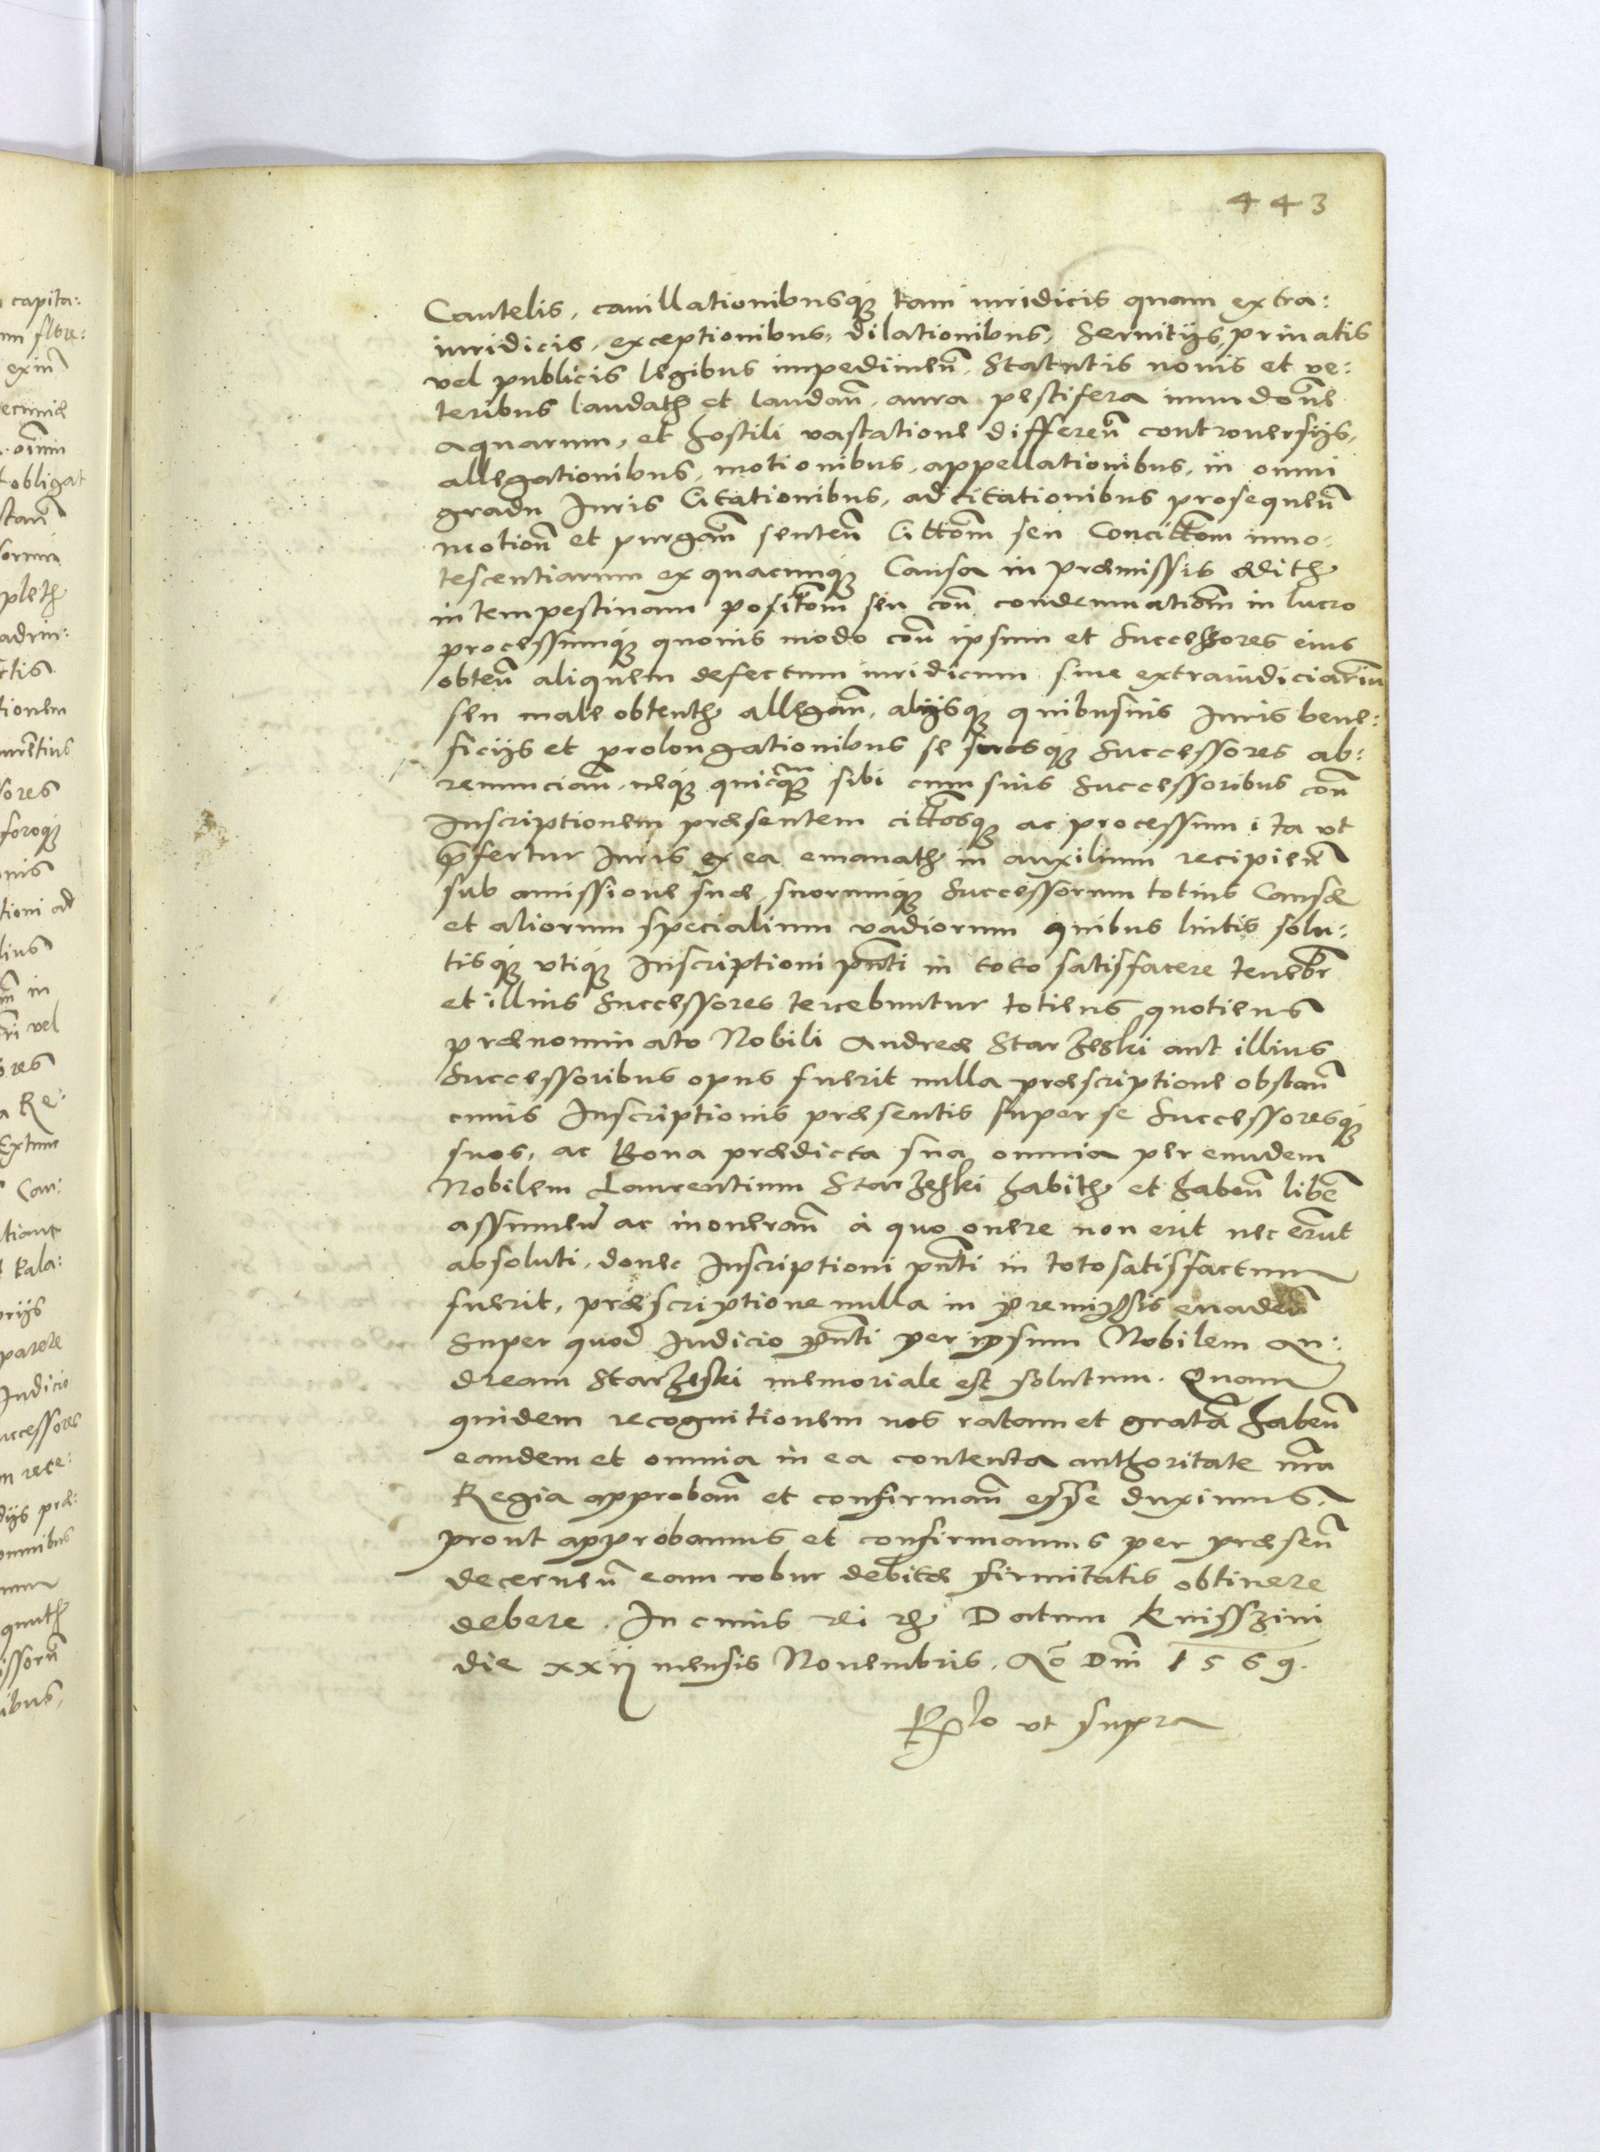 443
Cautelis, cauillationibusq; tam iuridicis quam extra:
iuridicis, exceptionibus, dilationibus, Seruitijs, priuatis
vel publicis legibus impedimeñ. Statutis nouis et ve:
teribus laudath et laudañ, aura pestifera inundõne
aquarum, et hostili vastatione differeñ controuersijs,
allegationibus, motionibus, appellationibus, in omni
gradu Iuris Citationibus, adcitationibus prosequeñ
motionũ et purgam̃ senteñ Cittõm seu Concittõm inno:
tescentiarum ex quacunq; Causa in præmissis ædith
intempestiuam positõm seu coñ condemnatiom̃ in lucro
processumq; quouis modo coñ ipsum et Successores eius
obteñ aliquem defectum iuridicum siue extraiudiciariũ
seu male obtenth allegañ, alijsq; quibusuis Iuris bene:
ficijs et prolongationibus se suosq; Successores ab:
renunciañ, neq; quicq̃m sibi cum suis Successoribus coñ
Inscriptionem præsentem cittõesq; ac processum ita vt
p̃fertur Iuris ex ea emanath in auxilium recipieñ
sub amissione suæ, suorumq; Successorum totius Causæ
et aliorum specialium vadiorum quibus luitis solu:
tisq; vtiq; Inscriptioni pñti in toto satisfacere tenebr̃
et illius Successores tenebuntur totiens quotiens
prænominato Nobili Andreæ Starzeski aut illius
Successoribus opus fuerit nulla præscriptione obstañ
onus Inscriptionis præsentis super se Successoresq;
suos, ac Bona prædicta sua omnia per eundem
Nobilem Laurentium Starzeski habith et habeñ libẽ
assumeñ ac inonerañ à quo onere non erit nec erũt
absoluti, donec Inscriptioni pñti in toto satisfactum
fuerit, præscriptione nulla in premissis euadeñ
Super quod Iudicio pñti per ipsum Nobilem An:
dream Starzeski memoriale est solutum. Quam
quidem recognitionem nos ratam et gratã habeñ
eandem et omnia in ea contenta authoritate nr̃a
Regia approbañ et confirmañ esse duximus,
prout approbamus et confirmamus per præseñ
decerneñ eam robur debitæ firmitatis obtinere
debere. In cuius rei rh Datum Knisszini
die xxij mensis Nouembris. Aõ Dñi 1569.
R͠lo vt supra